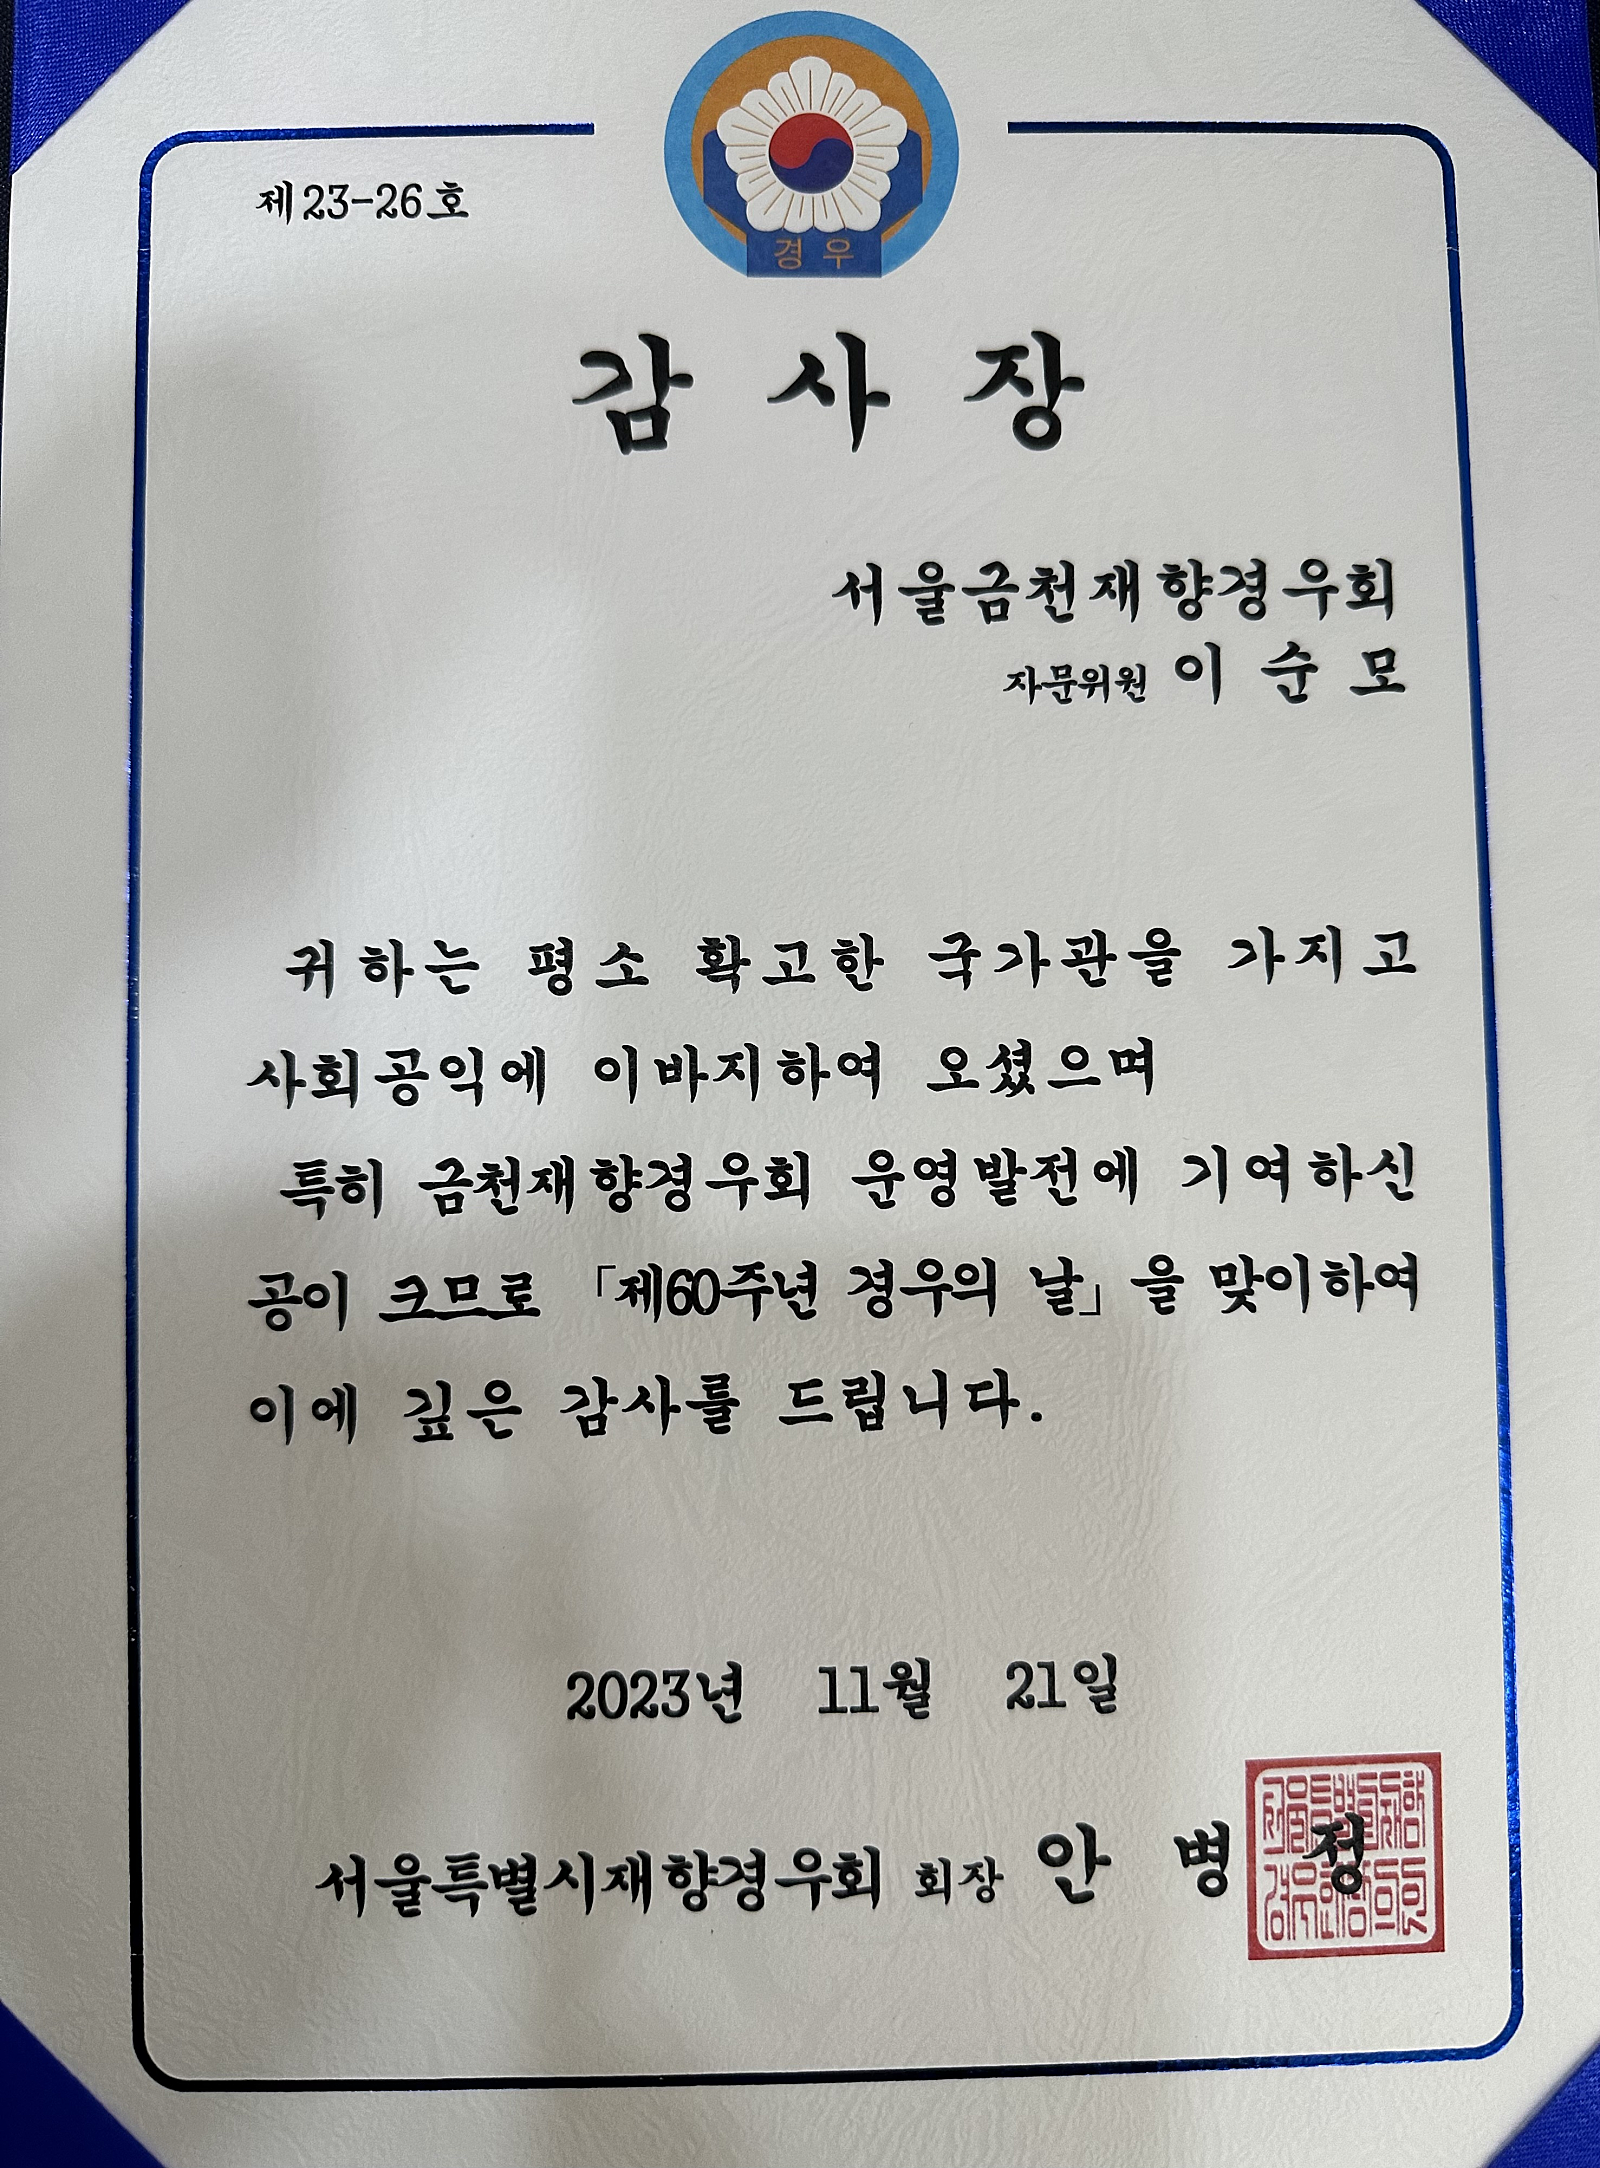 경우
제23-26호
감 사 장
서울금천재향경우회
자문위원 이 순 모
귀하는 평소 확고한 국가관을 가지고
사회공익에 이바지하여 오셨으며
특히 금천재향경우회 운영발전에 기여하신
공이 크므로 「제60주년 경우의 날」을 맞이하여
이에 깊은 감사를 드립니다.
2023년 11월 21일
서울특별시재향경우회 회장 안 병 정